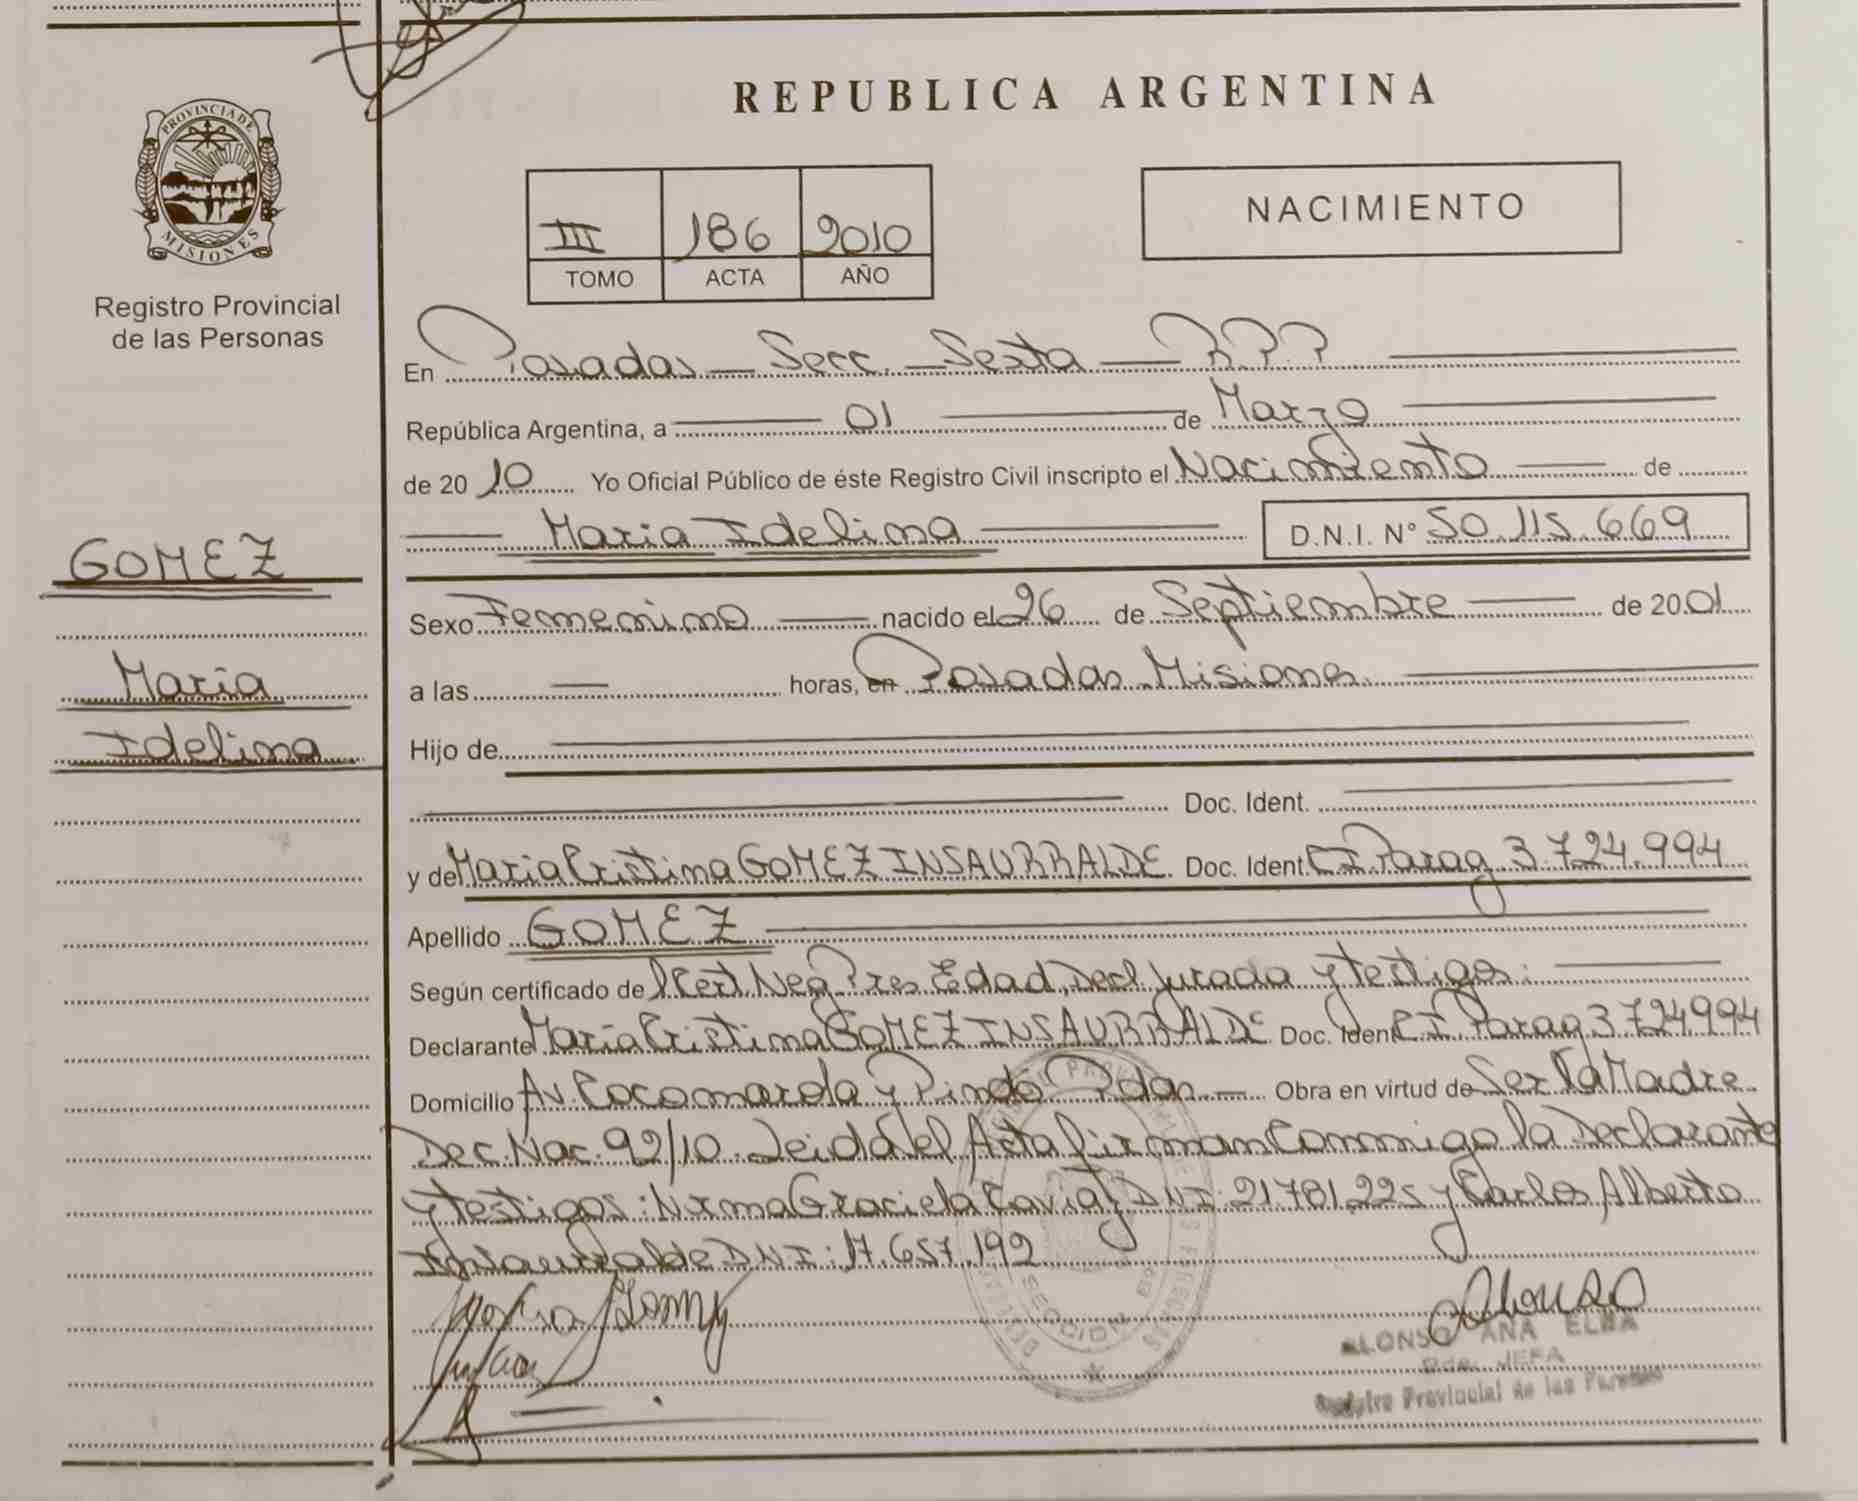 REPUBLICA ARGENTINA
PROVINCIA DE
MISIONES
Registro Provincial
de las Personas
III 186 2010
TOMO ACTA AÑO
NACIMIENTO
GOMEZ
Maria
Idelina
En Posadas Secc. Sexta R.P.P
República Argentina, a 01 de Marzo
de 2010 Yo Oficial Público de éste Registro Civil inscripto el Nacimiento de
Maria Idelina D.N.I. N° 50.115.669
Sexo Femenino nacido el 26 de Septiembre de 2001
a las horas, en Posadas Misiones
Hijo de
Doc. Ident.
y de Maria Cristina GOMEZ INSAURRALDE Doc. Ident. C I Parag 3.724.994
Apellido GOMEZ
Según certificado de Neg Pres Edad, Decl Jurada y testigos:
Declarante Maria Cristina GOMEZ INSAURRALDE Doc. Ident C I Parag 3724994
Domicilio Av. Cocomarola y Pindo Pdas Obra en virtud de Ser la Madre
Dec. Nac. 92/10. Leida el Acta firman Conmigo la Declarante
y testigos: Norma Graciela DNI: 21781225 y Carlos Alberto
Insaurralde DNI: 17.657.192
SECCION
Alonso
ALONSO ANA ELBA
JEFA
Registro Provincial de las Personas